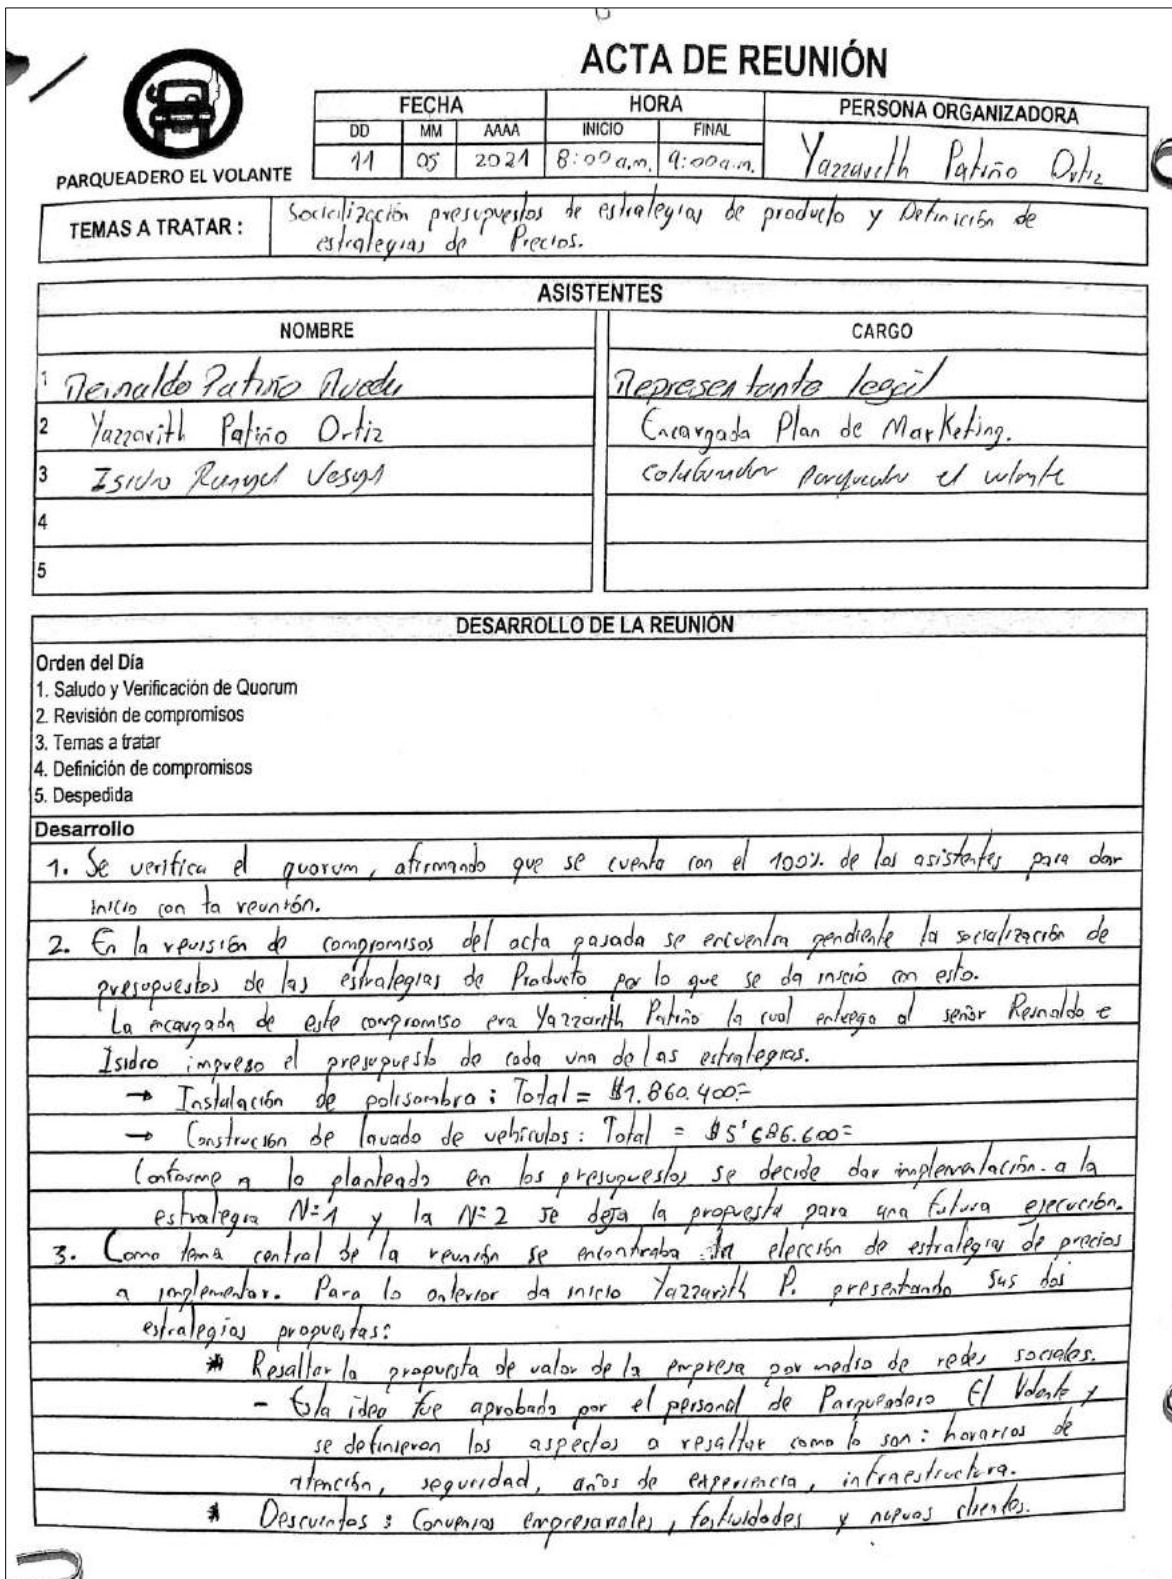 ACTA DE REUNIÓN
PARQUEADERO EL VOLANTE
FECHA HORA PERSONA ORGANIZADORA
DD MM AAAA INICIO FINAL
11 05 2021 8:00 a.m. 9:00 a.m. Yazzarith Patiño Ortiz
TEMAS A TRATAR : Socialización presupuestos de estrategias de producto y Definición de
estrategias de Precios.
ASISTENTES
NOMBRE CARGO
1 Reinaldo Patiño Rueda Representante legal
2 Yazzarith Patiño Ortiz Encargada Plan de Marketing.
3 Isidro Rangel Vesga colaborador parqueadero el volante
4
5
DESARROLLO DE LA REUNIÓN
Orden del Día
1. Saludo y Verificación de Quorum
2. Revisión de compromisos
3. Temas a tratar
4. Definición de compromisos
5. Despedida
Desarrollo
1. Se verifica el quorum, afirmando que se cuenta con el 100% de los asistentes para dar
inicio con la reunión.
2. En la revisión de compromisos del acta pasada se encuentra pendiente la socialización de
presupuestos de las estrategias de Producto por lo que se da inicio con esto.
La encargada de este compromiso era Yazzarith Patiño la cual entrego al señor Reinaldo e
Isidro impreso el presupuesto de cada una de las estrategias.
→ Instalación de polisombra : Total = $1.860.400=
→ Construcción de lavado de vehículos : Total = $5'686.600=
Conforme a lo planteado en los presupuestos se decide dar implementación. a la
estrategia N=1 y la N=2 se deja la propuesta para una futura ejecución.
3. Como tema central de la reunión se encontraba la elección de estrategias de precios
a implementar. Para lo anterior da inicio Yazzarith P. presentando sus dos
estrategias propuestas:
* Resaltar la propuesta de valor de la empresa por medio de redes sociales.
- Esta idea fue aprobada por el personal de Parqueadero El Volante y
se definieron los aspectos a resaltar como lo son : horarios de
atención, seguridad, años de experiencia, infraestructura.
* Descuentos : Convenios empresariales, festividades y nuevos clientes.